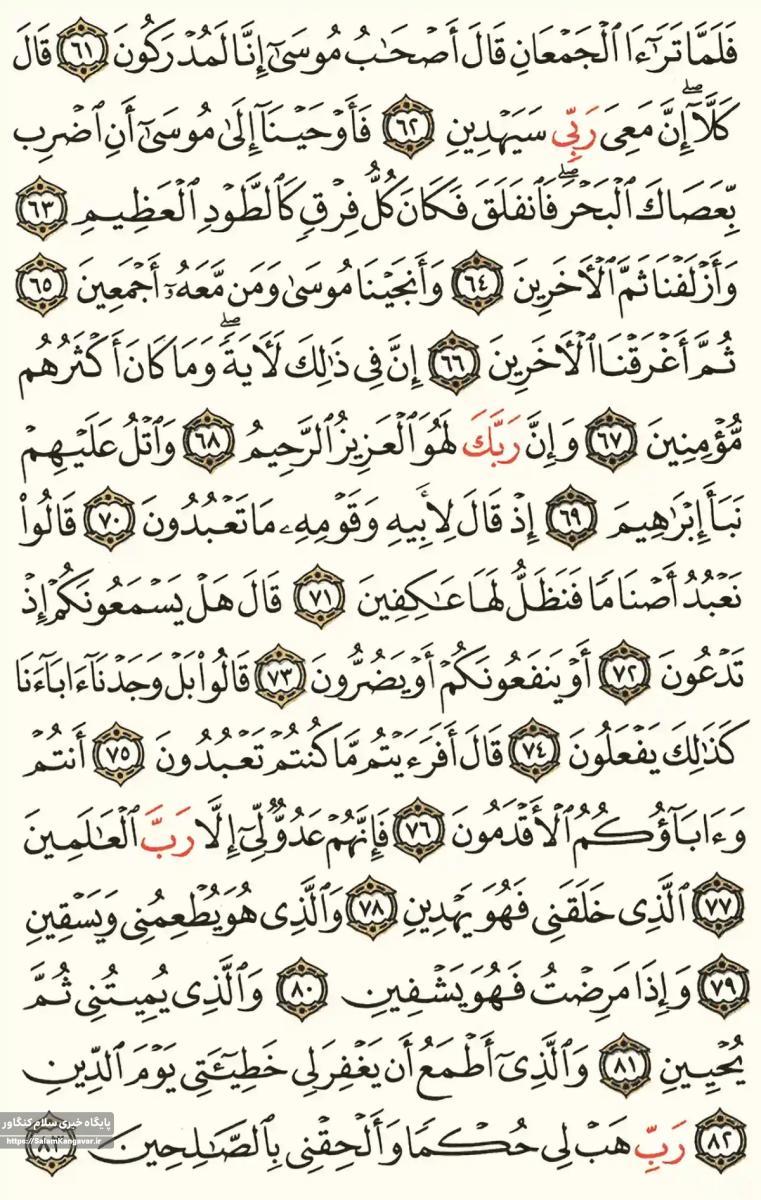 فَلَمَّا تَرَٰٓءَا ٱلۡجَمۡعَانِ قَالَ أَصۡحَٰبُ مُوسَىٰٓ إِنَّا لَمُدۡرَكُونَ ٦١ قَالَ
كَلَّآۖ إِنَّ مَعِيَ رَبِّي سَيَهۡدِينِ ٦٢ فَأَوۡحَيۡنَآ إِلَىٰ مُوسَىٰٓ أَنِ ٱضۡرِب
بِّعَصَاكَ ٱلۡبَحۡرَۖ فَٱنفَلَقَ فَكَانَ كُلُّ فِرۡقٖ كَٱلطَّوۡدِ ٱلۡعَظِيمِ ٦٣
وَأَزۡلَفۡنَا ثَمَّ ٱلۡأٓخَرِينَ ٦٤ وَأَنجَيۡنَا مُوسَىٰ وَمَن مَّعَهُۥٓ أَجۡمَعِينَ ٦٥
ثُمَّ أَغۡرَقۡنَا ٱلۡأٓخَرِينَ ٦٦ إِنَّ فِي ذَٰلِكَ لَأٓيَةٗۖ وَمَا كَانَ أَكۡثَرُهُم
مُّؤۡمِنِينَ ٦٧ وَإِنَّ رَبَّكَ لَهُوَ ٱلۡعَزِيزُ ٱلرَّحِيمُ ٦٨ وَٱتۡلُ عَلَيۡهِمۡ
نَبَأَ إِبۡرَٰهِيمَ ٦٩ إِذۡ قَالَ لِأَبِيهِ وَقَوۡمِهِۦ مَا تَعۡبُدُونَ ٧٠ قَالُواْ
نَعۡبُدُ أَصۡنَامٗا فَنَظَلُّ لَهَا عَٰكِفِينَ ٧١ قَالَ هَلۡ يَسۡمَعُونَكُمۡ إِذۡ
تَدۡعُونَ ٧٢ أَوۡ يَنفَعُونَكُمۡ أَوۡ يَضُرُّونَ ٧٣ قَالُواْ بَلۡ وَجَدۡنَآ ءَابَآءَنَا
كَذَٰلِكَ يَفۡعَلُونَ ٧٤ قَالَ أَفَرَءَيۡتُم مَّا كُنتُمۡ تَعۡبُدُونَ ٧٥ أَنتُمۡ
وَءَابَآؤُكُمُ ٱلۡأَقۡدَمُونَ ٧٦ فَإِنَّهُمۡ عَدُوّٞ لِّيٓ إِلَّا رَبَّ ٱلۡعَٰلَمِينَ
٧٧ ٱلَّذِي خَلَقَنِي فَهُوَ يَهۡدِينِ ٧٨ وَٱلَّذِي هُوَ يُطۡعِمُنِي وَيَسۡقِينِ
٧٩ وَإِذَا مَرِضۡتُ فَهُوَ يَشۡفِينِ ٨٠ وَٱلَّذِي يُمِيتُنِي ثُمَّ
يُحۡيِينِ ٨١ وَٱلَّذِيٓ أَطۡمَعُ أَن يَغۡفِرَ لِي خَطِيٓـَٔتِي يَوۡمَ ٱلدِّينِ
٨٢ رَبِّ هَبۡ لِي حُكۡمٗا وَأَلۡحِقۡنِي بِٱلصَّٰلِحِينَ ٨٣
پایگاه خبری سلام کنگاور
https://SalamKangavar.ir